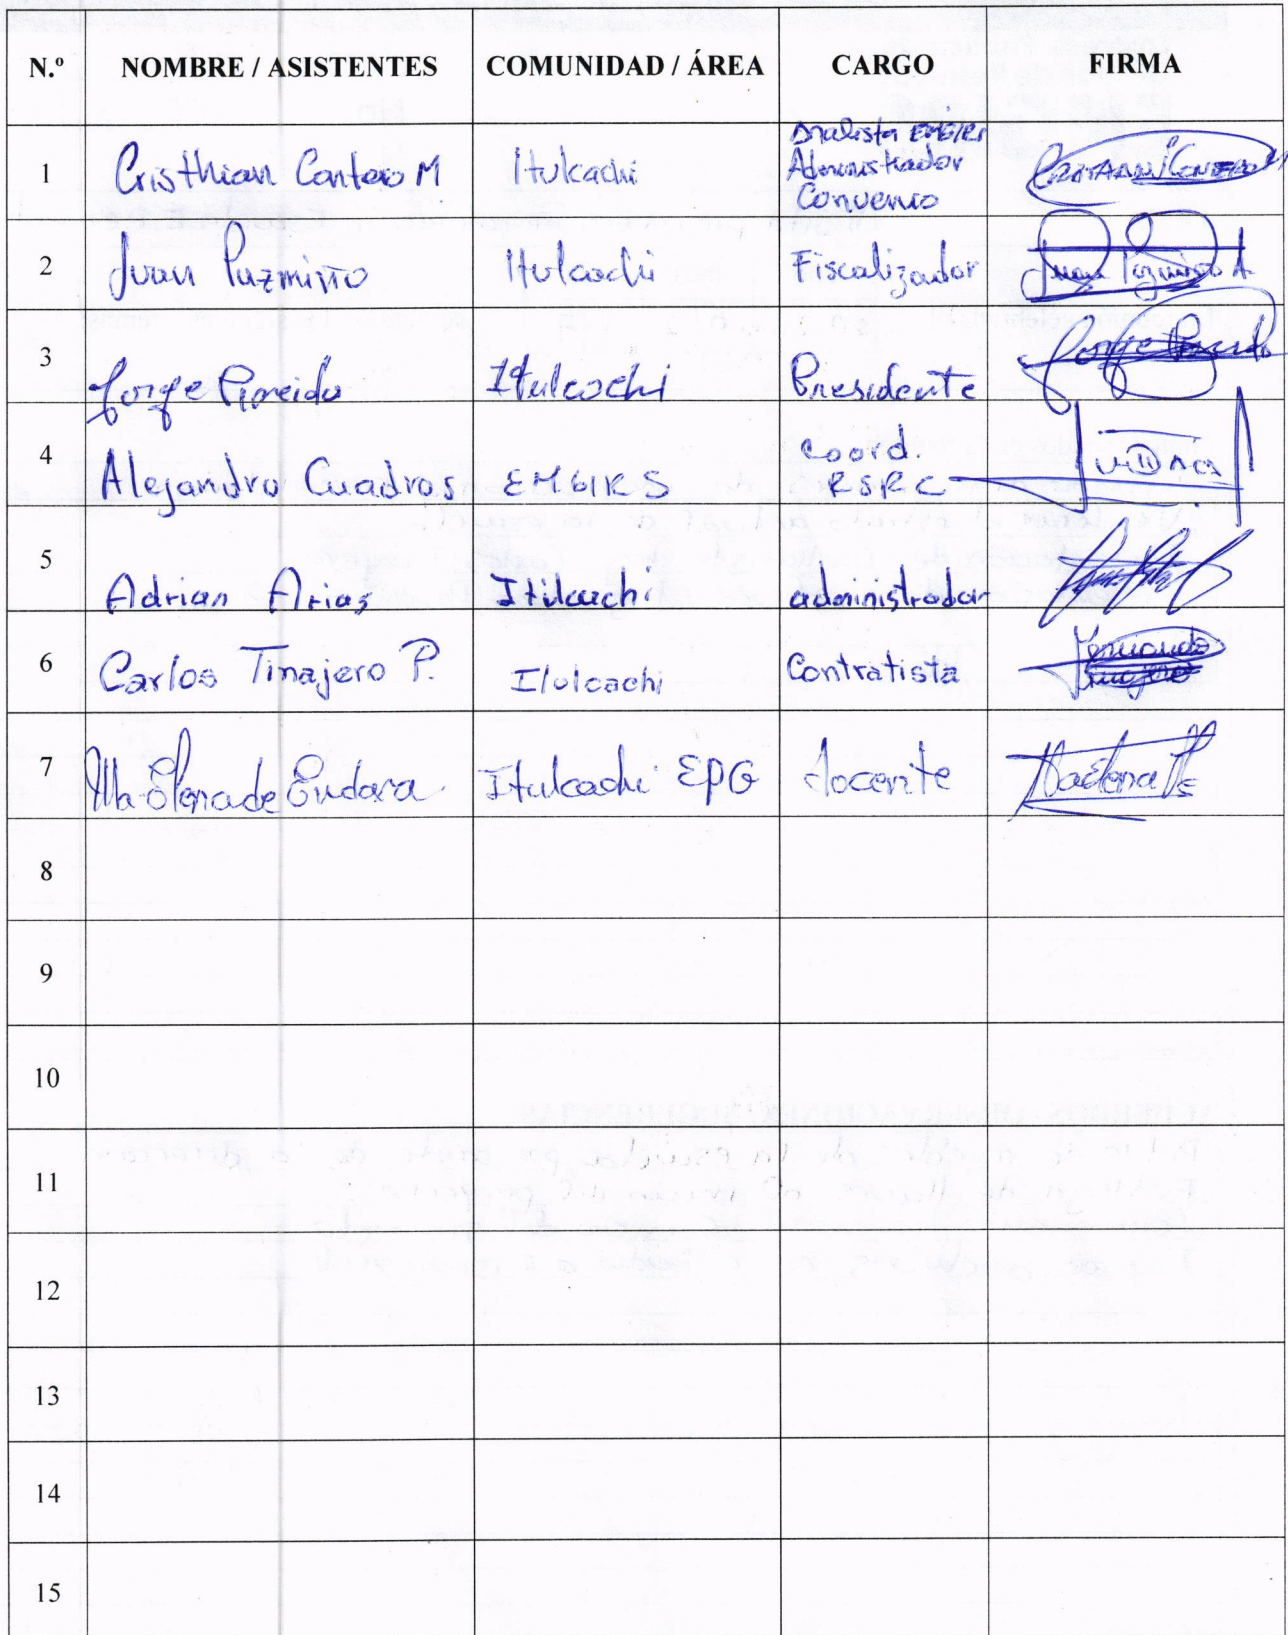 N.º NOMBRE / ASISTENTES COMUNIDAD / ÁREA CARGO FIRMA
1 Cristhian Contero M Itulcachi Analista EMGIRS
Administrador
Convenio
2 Juan Pazmiño Itulcachi Fiscalizador Juan Pazmiño A
3 Jorge Itulcachi Presidente Jorge
4 Alejandro Cuadros EMGIRS Coord.
RSRC
5 Adrian Arias Itilcachi administrador
6 Carlos Tinajero P. Itulcachi Contratista Fernando
Tinajero
7 Ma Elena de Endara Itulcachi EPG docente
8
9
10
11
12
13
14
15